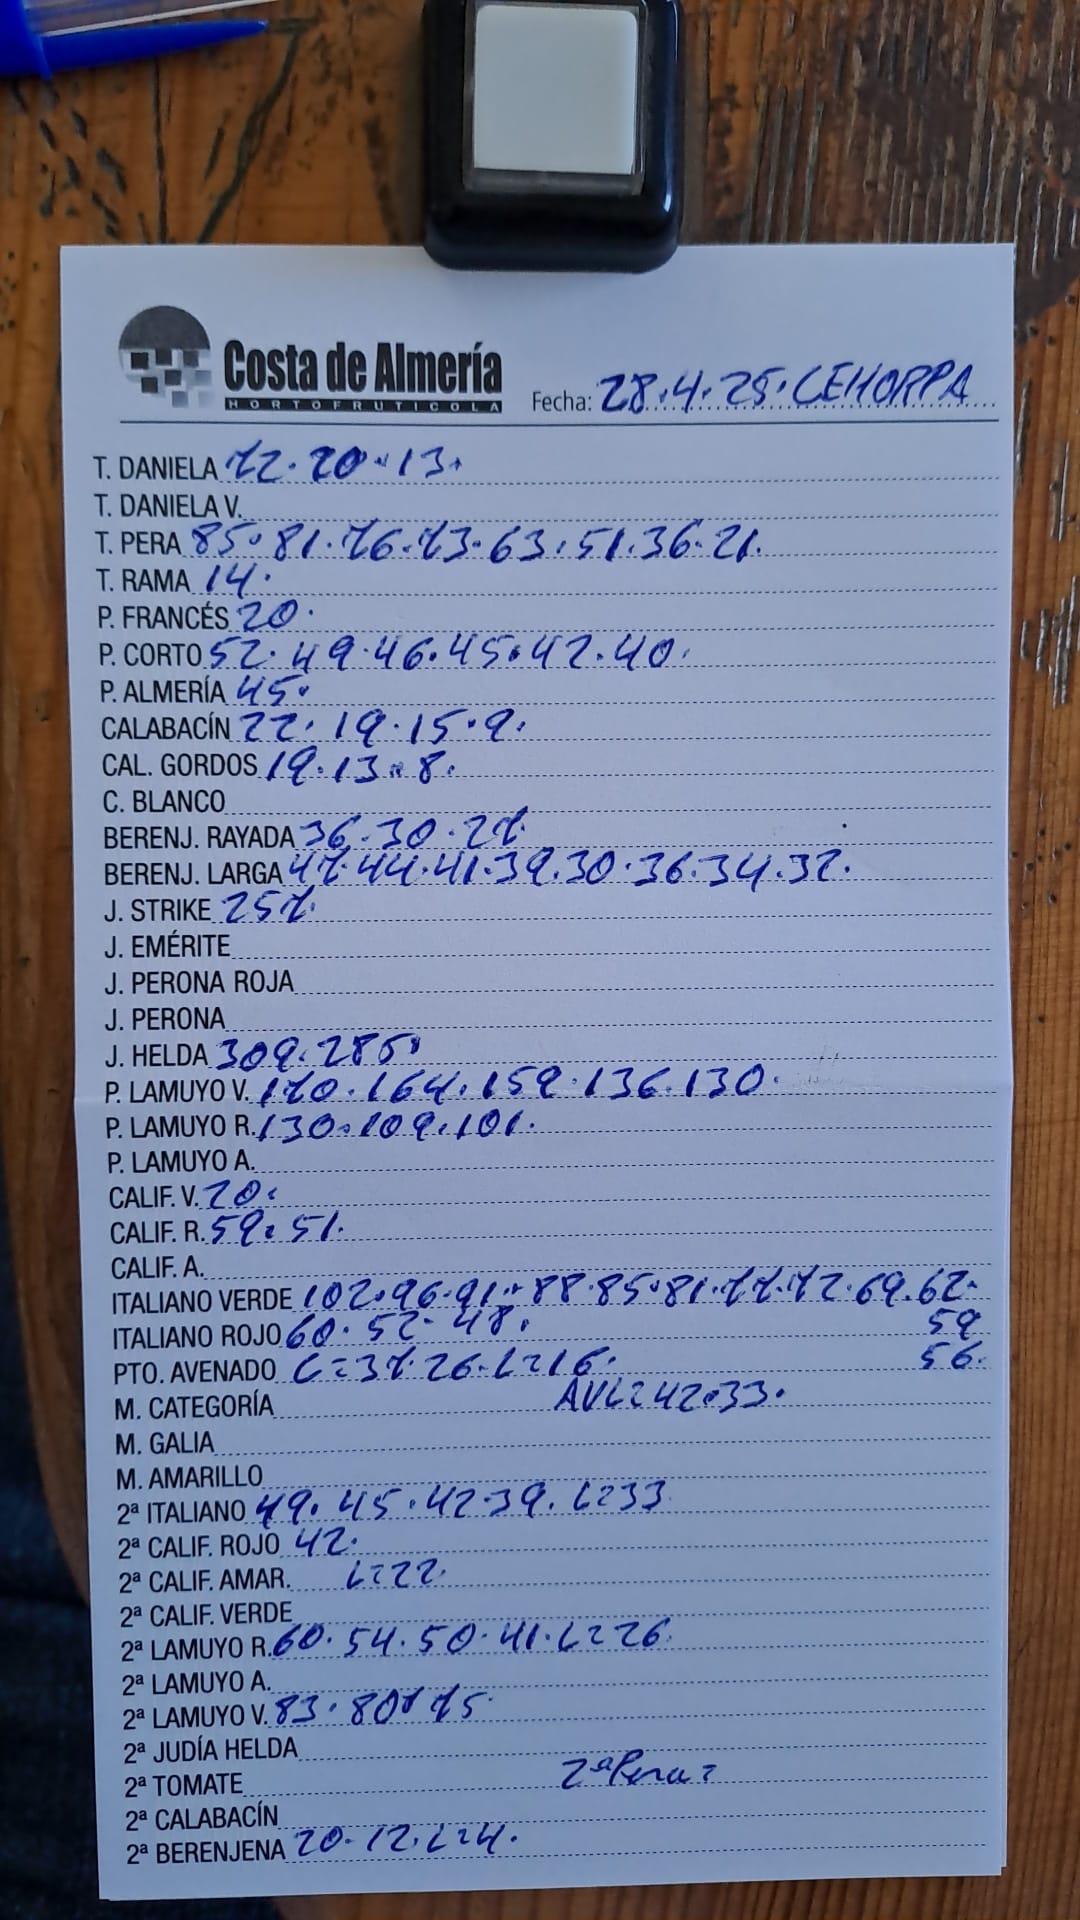 Costa de Almería
HORTOFRUTICOLA
Fecha: 28.4.25. CEHORPA
T. DANIELA 72.20.13.
T. DANIELA V.
T. PERA 85.81.76.73.63.51.36.21.
T. RAMA 14.
P. FRANCÉS 20.
P. CORTO 52.49.46.45.42.40.
P. ALMERÍA 45.
CALABACÍN 22.19.15.9.
CAL. GORDOS 19.13.8.
C. BLANCO
BERENJ. RAYADA 36.30.27.
BERENJ. LARGA 47.44.41.39.30.36.34.32.
J. STRIKE 257.
J. EMÉRITE
J. PERONA ROJA
J. PERONA
J. HELDA 309.285.
P. LAMUYO V. 170.164.159.136.130.
P. LAMUYO R. 130.109.101.
P. LAMUYO A.
CALIF. V. 20.
CALIF. R. 59.51.
CALIF. A.
ITALIANO VERDE 102.96.91.88.85.81.77.72.69.62.
ITALIANO ROJO 60.52.48. 59
PTO. AVENADO C=37.26.L=16. 56.
M. CATEGORÍA AVL=42.33.
M. GALIA
M. AMARILLO
2ª ITALIANO 49.45.42.39.L=33
2ª CALIF. ROJO 42.
2ª CALIF. AMAR. L=22.
2ª CALIF. VERDE
2ª LAMUYO R. 60.54.50.41.L=26.
2ª LAMUYO A.
2ª LAMUYO V. 83.80.75.
2ª JUDÍA HELDA
2ª TOMATE 2ªPera=
2ª CALABACÍN
2ª BERENJENA 20.12.L=4.